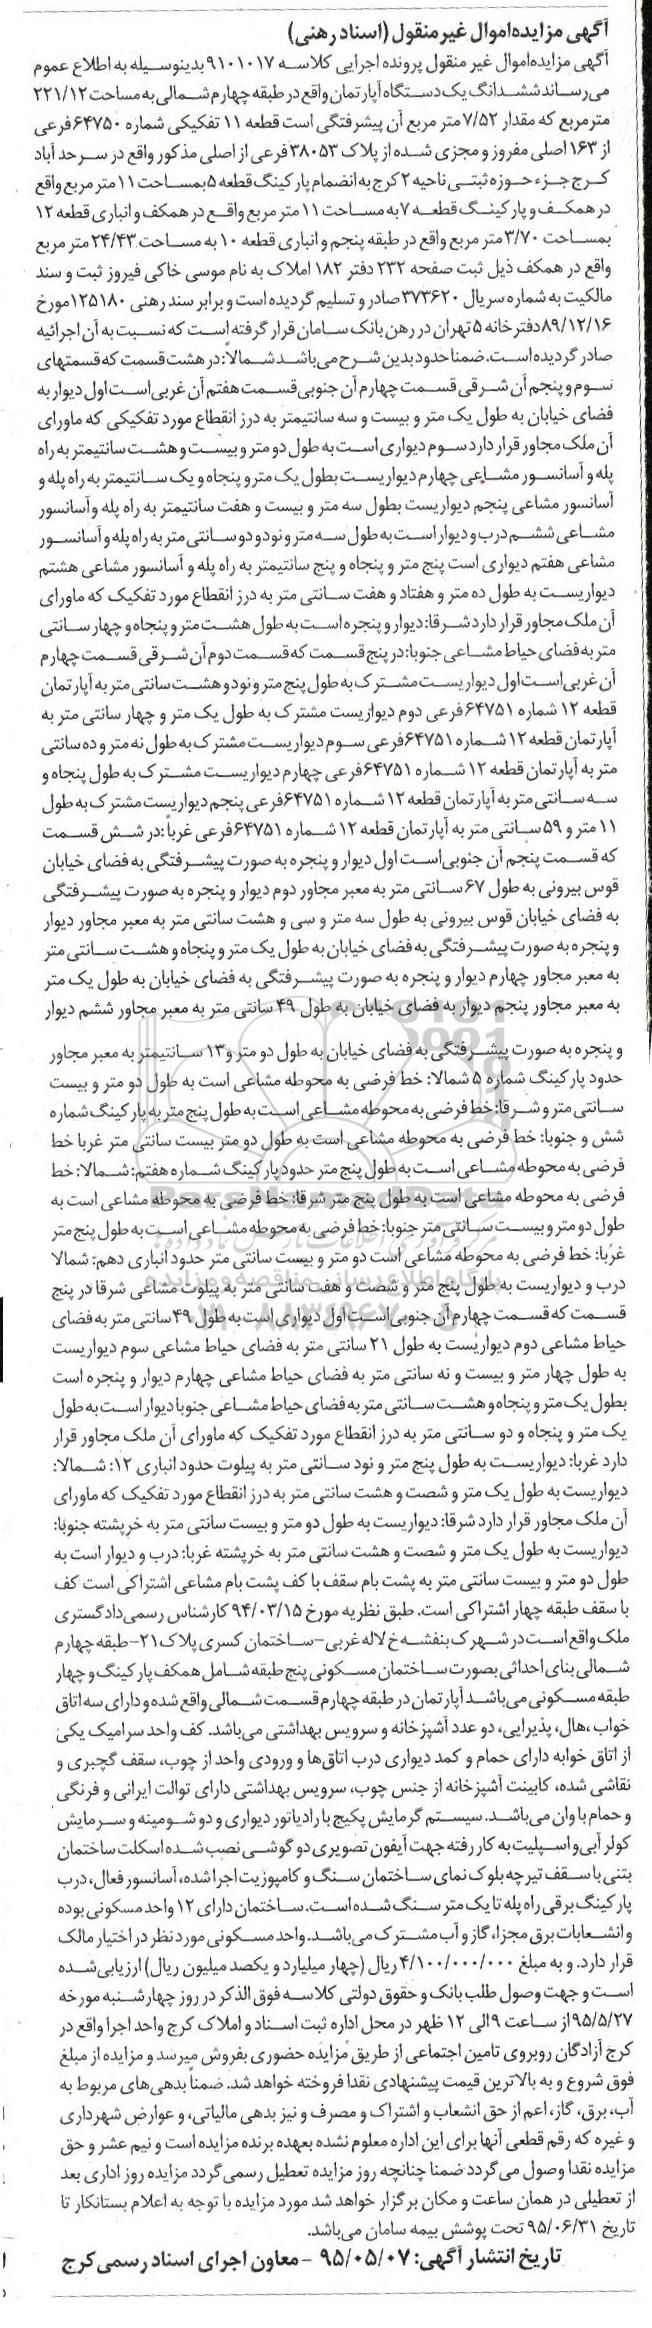 آگهی مزایده اموال غیر منقول (اسناد رهنی)
آگهی مزایده اموال غیر منقول پرونده اجرایی کلاسه ۹۱۰۱۰۱۷ بدینوسیله به اطلاع عموم
می‌رساند ششدانگ یک دستگاه آپارتمان واقع در طبقه چهارم شمالی به مساحت ۲۲۱/۱۲
مترمربع که مقدار ۷/۵۲ متر مربع آن پیشرفتگی است قطعه ۱۱ تفکیکی شماره ۶۴۷۵۰ فرعی
از ۱۶۳ اصلی مفروز و مجزی شده از پلاک ۳۸۰۵۳ فرعی از اصلی مذکور واقع در سرحد آباد
کرج جزء حوزه ثبتی ناحیه ۲ کرج به انضمام پارکینگ قطعه ۵ بمساحت ۱۱ متر مربع واقع
در همکف و پارکینگ قطعه ۷ به مساحت ۱۱ متر مربع واقع در همکف و انباری قطعه ۱۲
بمساحت ۳/۷۰ متر مربع واقع در طبقه پنجم و انباری قطعه ۱۰ به مساحت ۲۴/۴۳ متر مربع
واقع در همکف ذیل ثبت صفحه ۲۳۲ دفتر ۱۸۲ املاک به نام موسی خاکی فیروز ثبت و سند
مالکیت به شماره سریال ۳۷۳۶۲۰ صادر و تسلیم گردیده است و برابر سند رهنی ۱۲۵۱۸۰ مورخ
۸۹/۱۲/۱۶ دفترخانه ۵ تهران در رهن بانک سامان قرار گرفته است که نسبت به آن اجرائیه
صادر گردیده است. ضمنا حدود بدین شرح می‌باشد شمالاً: در هشت قسمت که قسمتهای
سوم و پنجم آن شرقی قسمت چهارم آن جنوبی قسمت هفتم آن غربی است اول دیوار به
فضای خیابان به طول یک متر و بیست و سه سانتیمتر به درز انقطاع مورد تفکیکی که ماورای
آن ملک مجاور قرار دارد سوم دیواری است به طول دو متر و بیست و هشت سانتیمتر به راه
پله و آسانسور مشاعی چهارم دیواریست بطول یک متر و پنجاه و یک سانتیمتر به راه پله و
آسانسور مشاعی پنجم دیواریست بطول سه متر و بیست و هفت سانتیمتر به راه پله و آسانسور
مشاعی ششم درب و دیوار است به طول سه متر و نود و دو سانتی متر به راه پله و آسانسور
مشاعی هفتم دیواری است پنج متر و پنجاه و پنج سانتیمتر به راه پله و آسانسور مشاعی هشتم
دیواریست به طول ده متر و هفتاد و هفت سانتی متر به درز انقطاع مورد تفکیک که ماورای
آن ملک مجاور قرار دارد شرقا: دیوار و پنجره است به طول هشت متر و پنجاه و چهار سانتی
متر به فضای حیاط مشاعی جنوبا: در پنج قسمت که قسمت دوم آن شرقی قسمت چهارم
آن غربی است اول دیواریست مشترک به طول پنج متر و نود و هشت سانتی متر به آپارتمان
قطعه ۱۲ شماره ۶۴۷۵۱ فرعی دوم دیواریست مشترک به طول یک متر و چهار سانتی متر به
آپارتمان قطعه ۱۲ شماره ۶۴۷۵۱ فرعی سوم دیواریست مشترک به طول نه متر و ده سانتی
متر به آپارتمان قطعه ۱۲ شماره ۶۴۷۵۱ فرعی چهارم دیواریست مشترک به طول پنجاه و
سه سانتی متر به آپارتمان قطعه ۱۲ شماره ۶۴۷۵۱ فرعی پنجم دیواریست مشترک به طول
۱۱ متر و ۵۹ سانتی متر به آپارتمان قطعه ۱۲ شماره ۶۴۷۵۱ فرعی غرباً: در شش قسمت
که قسمت پنجم آن جنوبی است اول دیوار و پنجره به صورت پیشرفتگی به فضای خیابان
قوس بیرونی به طول ۶۷ سانتی متر به معبر مجاور دوم دیوار و پنجره به صورت پیشرفتگی
به فضای خیابان قوس بیرونی به طول سه متر و سی و هشت سانتی متر به معبر مجاور دیوار
و پنجره به صورت پیشرفتگی به فضای خیابان به طول یک متر و پنجاه و هشت سانتی متر
به معبر مجاور چهارم دیوار و پنجره به صورت پیشرفتگی به فضای خیابان به طول یک متر
به معبر مجاور پنجم دیوار به فضای خیابان به طول ۴۹ سانتی متر به معبر مجاور ششم دیوار
و پنجره به صورت پیشرفتگی به فضای خیابان به طول دو متر و ۱۳ سانتیمتر به معبر مجاور
حدود پارکینگ شماره ۵ شمالا: خط فرضی به محوطه مشاعی است به طول دو متر و بیست
سانتی متر و شرقا: خط فرضی به محوطه مشاعی است به طول پنج متر به پارکینگ شماره
شش و جنوبا: خط فرضی به محوطه مشاعی است به طول دو متر بیست سانتی متر غربا خط
فرضی به محوطه مشاعی است به طول پنج متر حدود پارکینگ شماره هفتم: شمالا: خط
فرضی به محوطه مشاعی است به طول پنج متر شرقا: خط فرضی به محوطه مشاعی است به
طول دو متر و بیست سانتی متر جنوبا: خط فرضی به محوطه مشاعی است به طول پنج متر
غربا: خط فرضی به محوطه مشاعی است دو متر و بیست سانتی متر حدود انباری دهم: شمالا
درب و دیواریست به طول پنج متر و شصت و هفت سانتی متر به پیلوت مشاعی شرقا در پنج
قسمت که قسمت چهارم آن جنوبی است اول دیواری است به طول ۴۹ سانتی متر به فضای
حیاط مشاعی دوم دیواریست به طول ۲۱ سانتی متر به فضای حیاط مشاعی سوم دیواریست
به طول چهار متر و بیست و نه سانتی متر به فضای حیاط مشاعی چهارم دیوار و پنجره است
بطول یک متر و پنجاه و هشت سانتی متر به فضای حیاط مشاعی جنوبا دیوار است به طول
یک متر و پنجاه و دو سانتی متر به درز انقطاع مورد تفکیک که ماورای آن ملک مجاور قرار
دارد غربا: دیواریست به طول پنج متر و نود سانتی متر به پیلوت حدود انباری ۱۲: شمالا:
دیواریست به طول یک متر و شصت و هشت سانتی متر به درز انقطاع مورد تفکیک که ماورای
آن ملک مجاور قرار دارد شرقا: دیواریست به طول دو متر و بیست سانتی متر به خرپشته جنوبا:
دیواریست به طول یک متر و شصت و هشت سانتی متر به خرپشته غربا: درب و دیوار است به
طول دو متر و بیست سانتی متر به پشت بام سقف با کف پشت بام مشاعی اشتراکی است کف
با سقف طبقه چهار اشتراکی است. طبق نظریه مورخ ۹۴/۰۳/۱۵ کارشناس رسمی دادگستری
ملک واقع است در شهرک بنفشه خ لاله غربی-ساختمان کسری پلاک ۲۱-طبقه چهارم
شمالی بنای احداثی بصورت ساختمان مسکونی پنج طبقه شامل همکف پارکینگ و چهار
طبقه مسکونی می‌باشد آپارتمان در طبقه چهارم قسمت شمالی واقع شده و دارای سه اتاق
خواب، هال، پذیرایی، دو عدد آشپزخانه و سرویس بهداشتی می‌باشد. کف واحد سرامیک یکی
از اتاق خوابه دارای حمام و کمد دیواری درب اتاق‌ها و ورودی واحد از چوب، سقف گچبری و
نقاشی شده، کابینت آشپزخانه از جنس چوب، سرویس بهداشتی دارای توالت ایرانی و فرنگی
و حمام با وان می‌باشد. سیستم گرمایش پکیج با رادیاتور دیواری و دو شومینه و سرمایش
کولر آبی و اسپلیت به کار رفته جهت آیفون تصویری دو گوشی نصب شده اسکلت ساختمان
بتنی با سقف تیرچه بلوک نمای ساختمان سنگ و کامپوزیت اجرا شده، آسانسور فعال، درب
پارکینگ برقی راه پله تا یک متر سنگ شده است. ساختمان دارای ۱۲ واحد مسکونی بوده
و انشعابات برق مجزا، گاز و آب مشترک می‌باشد. واحد مسکونی مورد نظر در اختیار مالک
قرار دارد. و به مبلغ ۴/۱۰۰/۰۰۰/۰۰۰ ریال (چهار میلیارد و یکصد میلیون ریال) ارزیابی شده
است و جهت وصول طلب بانک و حقوق دولتی کلاسه فوق الذکر در روز چهارشنبه مورخه
۹۵/۵/۲۷ از ساعت ۹ الی ۱۲ ظهر در محل اداره ثبت اسناد و املاک کرج واحد اجرا واقع در
کرج آزادگان روبروی تامین اجتماعی از طریق مزایده حضوری بفروش میرسد و مزایده از مبلغ
فوق شروع و به بالاترین قیمت پیشنهادی نقدا فروخته خواهد شد. ضمناً بدهی‌های مربوط به
آب، برق، گاز، اعم از حق انشعاب و اشتراک و مصرف و نیز بدهی مالیاتی، و عوارض شهرداری
و غیره که رقم قطعی آنها برای این اداره معلوم نشده بعهده برنده مزایده است و نیم عشر و حق
مزایده نقدا وصول می‌گردد ضمنا چنانچه روز مزایده تعطیل رسمی گردد مزایده روز اداری بعد
از تعطیلی در همان ساعت و مکان برگزار خواهد شد مورد مزایده با توجه به اعلام بستانکار تا
تاریخ ۹۵/۰۶/۳۱ تحت پوشش بیمه سامان می‌باشد.
تاریخ انتشار آگهی: ۹۵/۰۵/۰۷ - معاون اجرای اسناد رسمی کرج